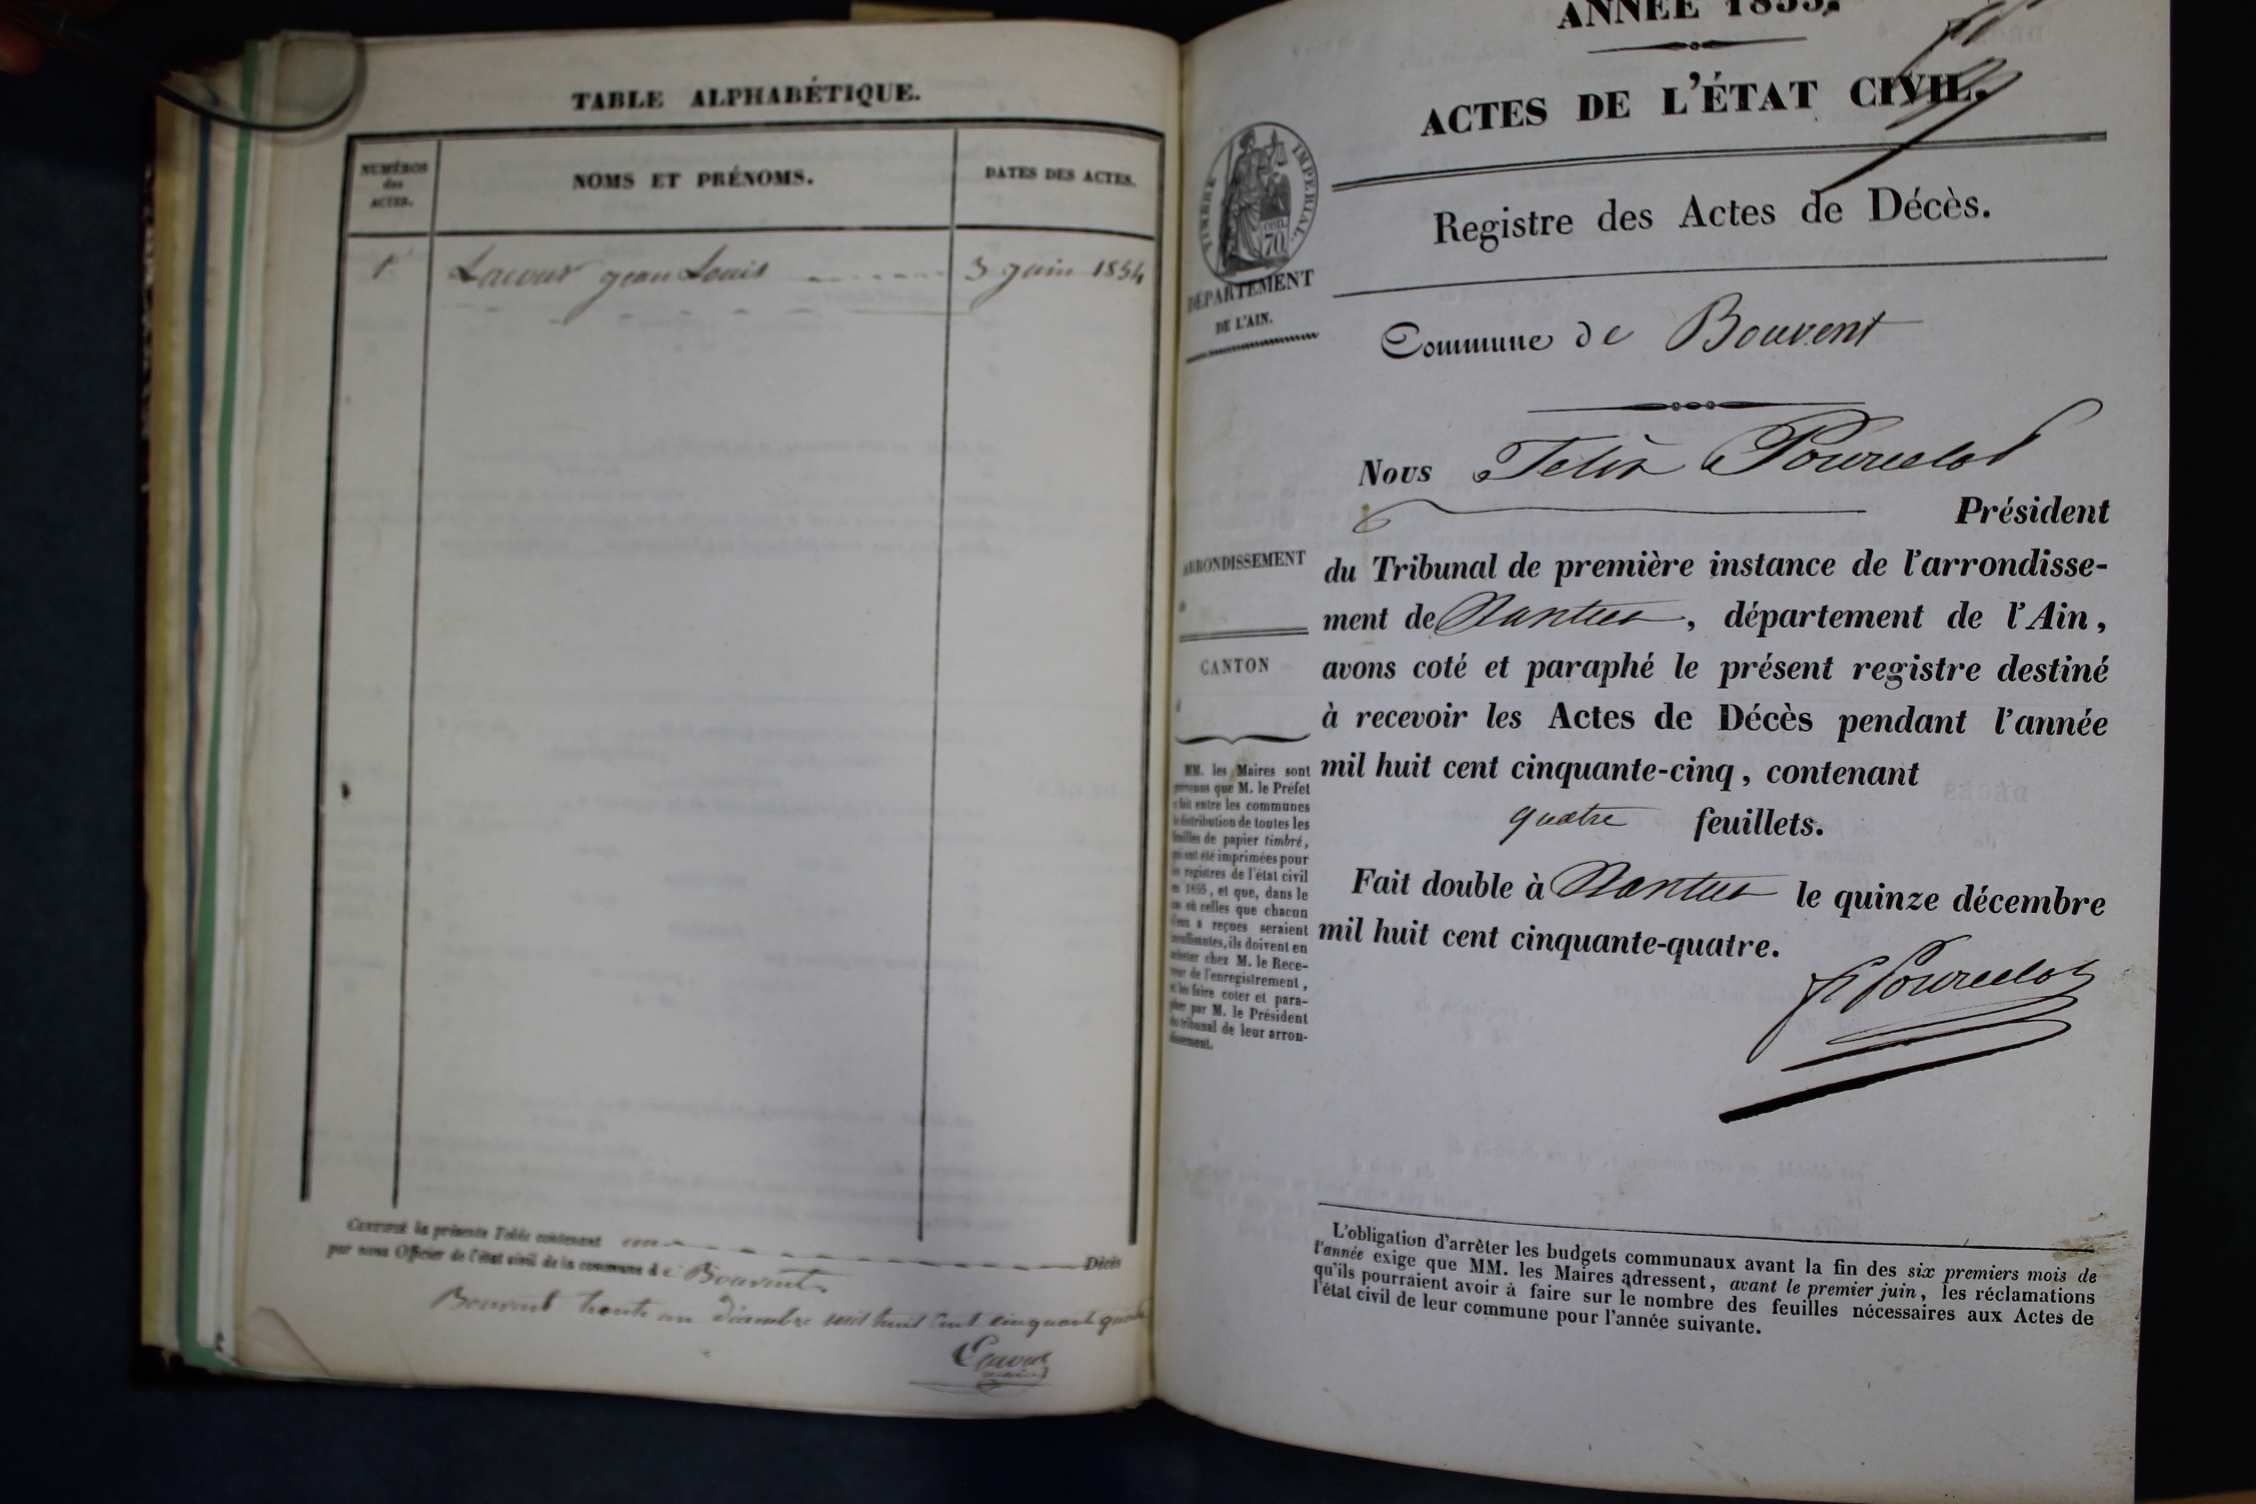 TABLE ALPHABÉTIQUE.
NUMÉROS
des
ACTES.
NOMS ET PRÉNOMS.
DATES DES ACTES.
1er Lacour jean Louis 3 juin 1854
CERTIFIÉ la présente Table contenant un Décès
par nous Officier de l'état civil de la commune de Bouvent
Bouvent trente un décembre mil huit cent cinquante quatre
ANNÉE 1855.
ACTES DE L'ÉTAT CIVIL.
Registre des Actes de Décès.
TIMBRE IMPÉRIAL.
70
DÉPARTEMENT
DE L'AIN.
Commune de Bouvent
Nous Félix Pourcelot
Président
ARRONDISSEMENT
du Tribunal de première instance de l'arrondisse-
ment de Nantua, département de l'Ain,
CANTON
avons coté et paraphé le présent registre destiné
à recevoir les Actes de Décès pendant l'année
mil huit cent cinquante-cinq, contenant
quatre feuillets.
Fait double à Nantua le quinze décembre
mil huit cent cinquante-quatre.
F Pourcelot
MM. les Maires sont
prévenus que M. le Préfet
a fait entre les communes
la distribution de toutes les
feuilles de papier timbré,
qui ont été imprimées pour
les registres de l'état civil
en 1855, et que, dans le
cas où celles que chacun
d'eux a reçues seraient
insuffisantes, ils doivent en
acheter chez M. le Rece-
veur de l'enregistrement,
et les faire coter et para-
pher par M. le Président
du tribunal de leur arron-
dissement.
L'obligation d'arrêter les budgets communaux avant la fin des six premiers mois de
l'année exige que MM. les Maires adressent, avant le premier juin, les réclamations
qu'ils pourraient avoir à faire sur le nombre des feuilles nécessaires aux Actes de
l'état civil de leur commune pour l'année suivante.